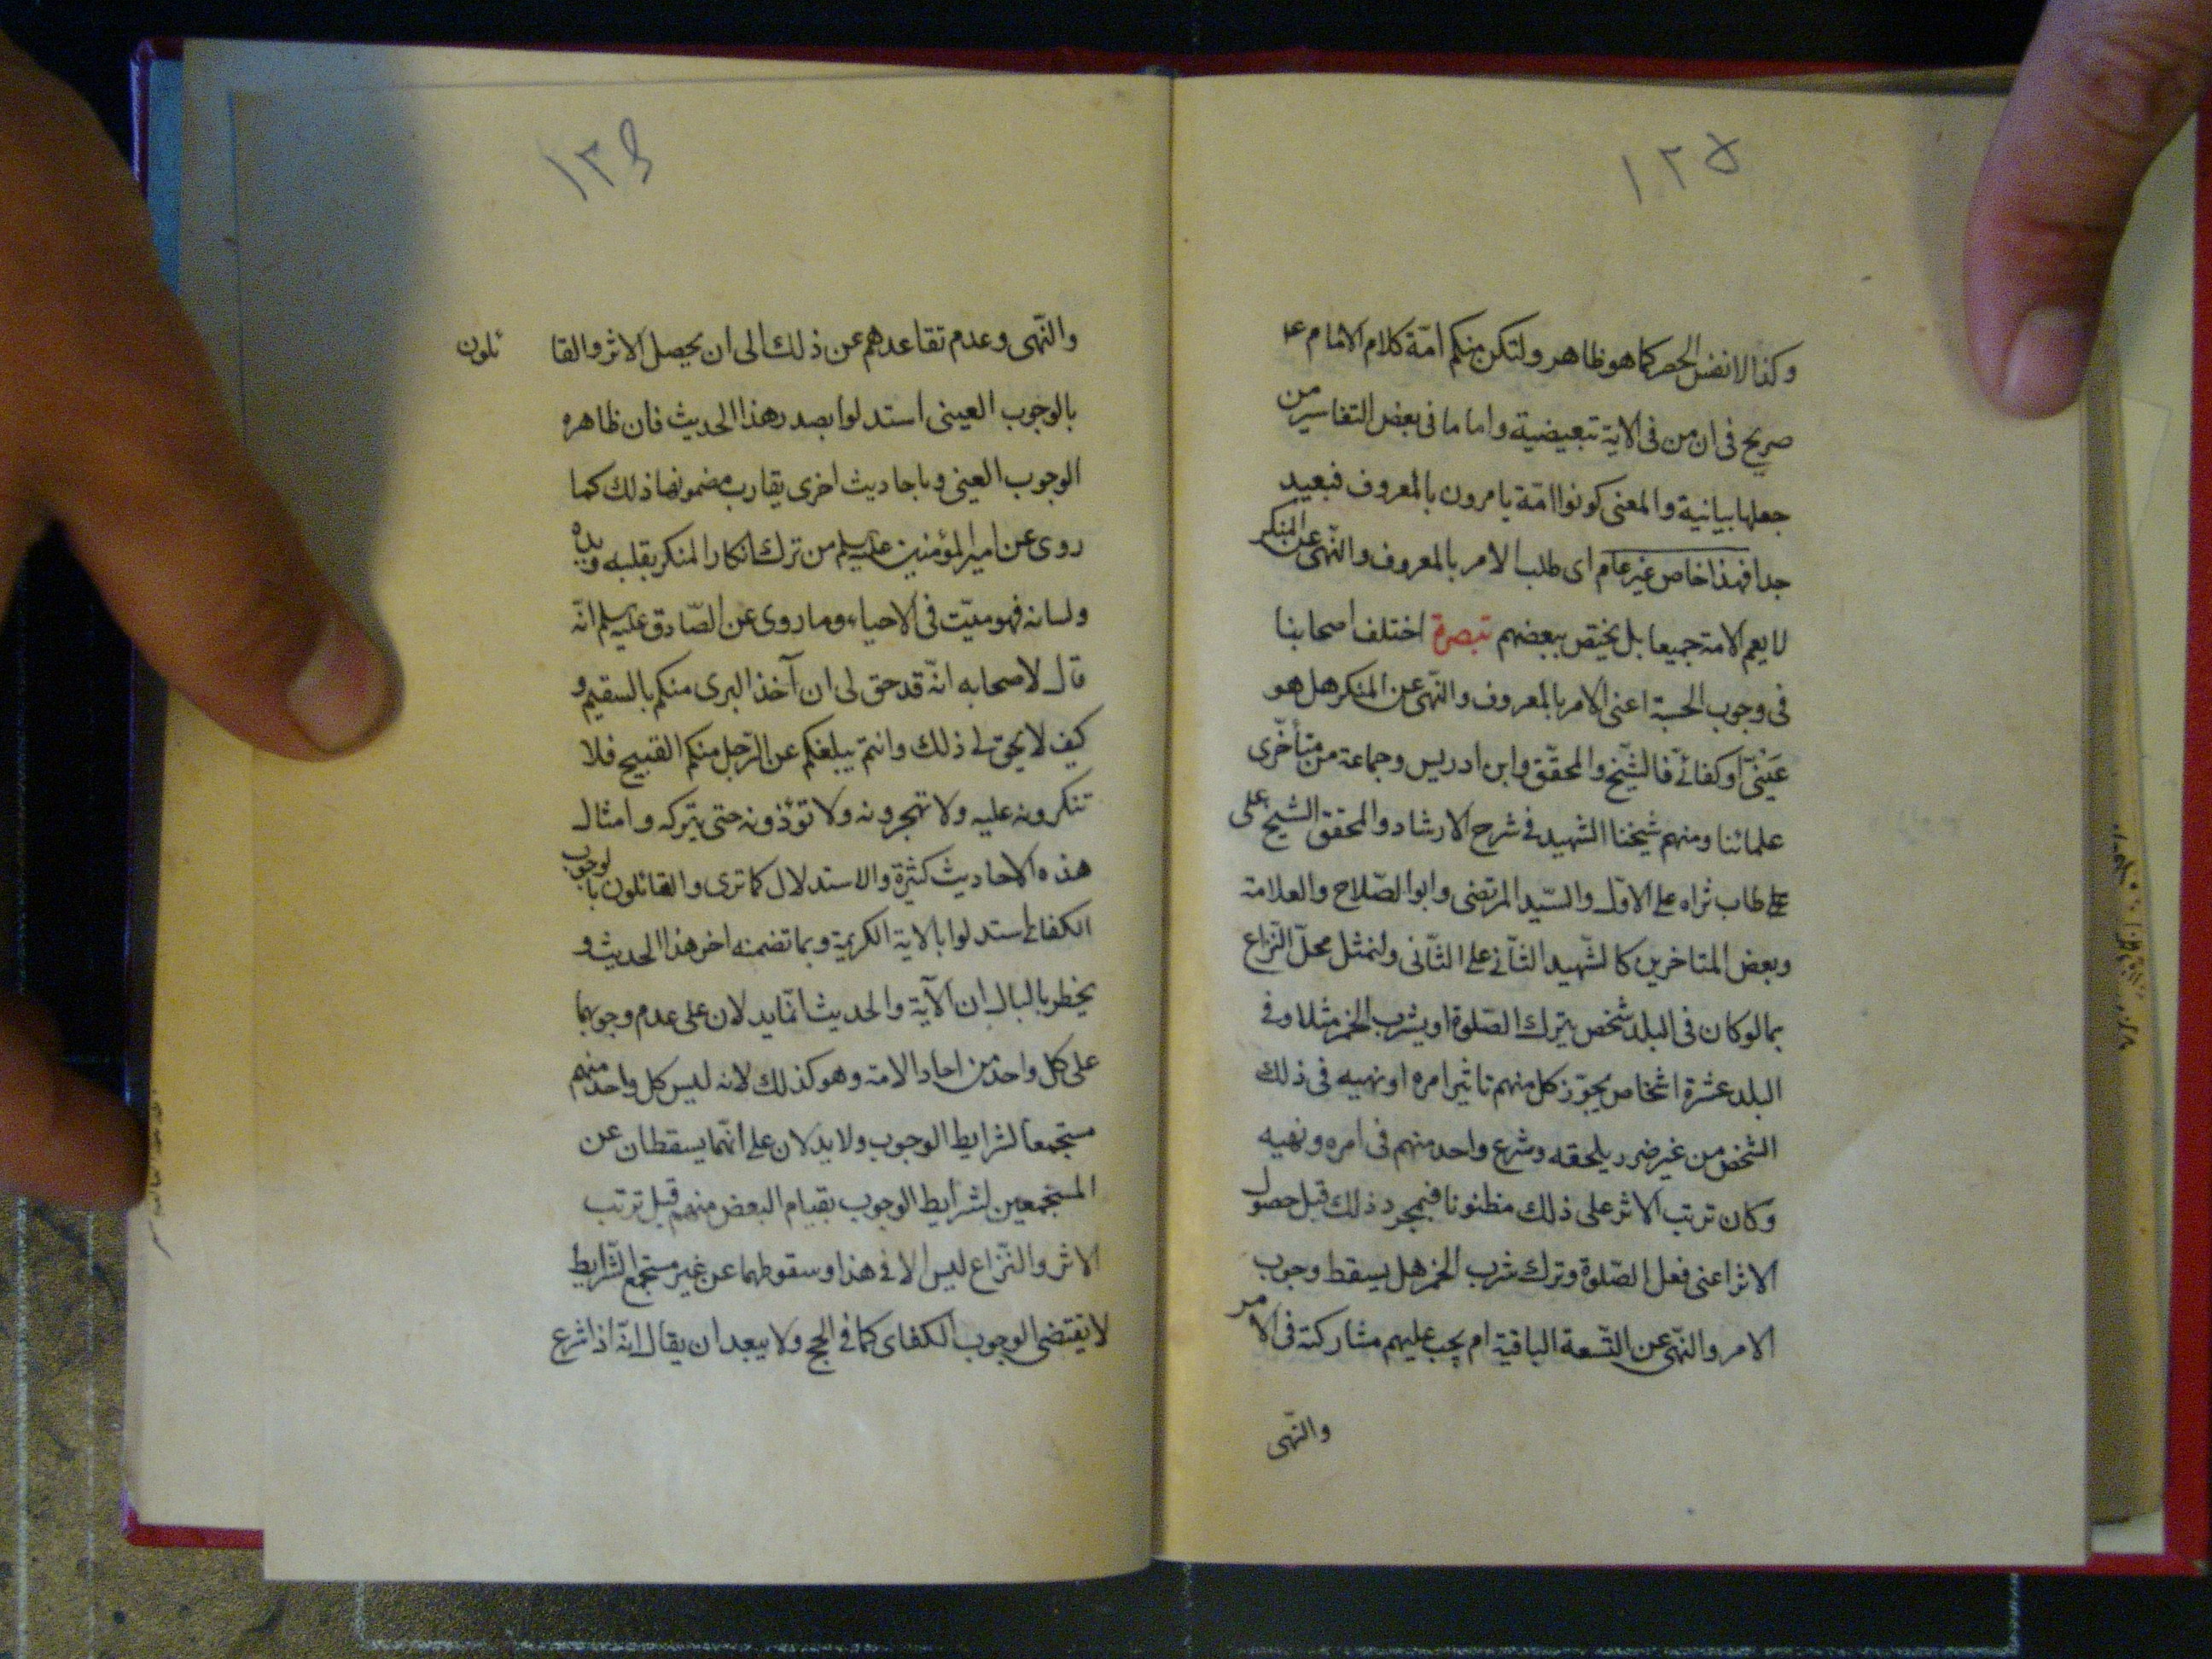 ١٢٥
وكذا الانفس الحصر كما هو ظاهر ولتكن منكم امّة كلام الامام ع
صريح فى ان من فى الاية تبعيضية واما ما فى بعض التفاسير من
جعلها بيانية والمعنى كونوا امّة يامرون بالمعروف فبعيد
جدا فهذا خاص غير عام اى طلب الامر بالمعروف والنّهى عن المنكر
لا يعم الامة جميعا بل يختص ببعضهم تبصرة اختلف اصحابنا
فى وجوب الحسبة اعنى الامر بالمعروف والنّهى عن المنكر هل هو
عَينىّ او كفائىّ فالشّيخ والمحقّق وابن ادريس وجماعة من متأخّرى
علمائنا ومنهم شيخنا الشهيد فى شرح الارشاد والمحقق الشيخ على
طاب ثراه على الاوّل والسّيد المرتضى وابو الصّلاح والعلامة
وبعض المتاخرين كالشّهيد الثّانى على الثّانى ولنمثل محلّ النزاع
بما لو كان فى البلد شخص يترك الصّلوة او يشرب الخمر مثلا وفى
البلد عشرة اشخاص يجوّز كل منهم تاثير امره او نهيه فى ذلك
الشخص من غير ضرر يلحقه وشرع واحد منهم فى امره ونهيه
وكان ترتب الاثر على ذلك مظنونا فبمجرد ذلك قبل حصول
الاثر اعنى فعل الصّلوة وترك شرب الخمر هل يسقط وجوب
الامر والنّهى عن التّسعة الباقية ام يجب عليهم مشاركته فى الامر
والنّهى
١٣٤
والنّهى وعدم تقاعدهم عن ذلك الى ان يحصل الاثر والقا ئلون
بالوجوب العينى استدلوا بصدر هذا الحديث فان ظاهره
الوجوب العينى وباحاديث اخرى يقارب مضمونها ذلك كما
روى عن امير المؤمنين عليه سلم من ترك انكار المنكر بقلبه ويده
ولسانه فهو ميّت فى الاحياء وما روى عن الصّادق عليه سلم انّه
قال لاصحابه انّه قد حق لى ان آخذ البرى منكم بالسقيم و
كيف لا يحق لى ذلك وانتم يبلغكم عن الرّجل منكم القبيح فلا
تنكرونه عليه ولا تهجرونه ولا تؤذونه حتى يتركه وامثال
هذه الاحاديث كثيرة والاستدلال كما ترى والقائلون بالوجوب
الكفائى استدلوا بالاية الكريمة وبما تضمنه اخر هذا الحديث و
يخطر بالبال ان الآية والحديث انّما يدلان على عدم وجوبهما
على كل واحد من احاد الامة وهو كذلك لانه ليس كل واحد منهم
مستجمعا لشرايط الوجوب ولا يدلان على انّهما يسقطان عن
المستجمعين لشرايط الوجوب بقيام البعض منهم قبل ترتب
الاثر والنّزاع ليس الا فى هذا وسقوطهما عن غير مستجمع الشّرايط
لا يقتضى الوجوب الكفاى كما فى الحج ولا يبعد ان يقال انّه اذا شرع